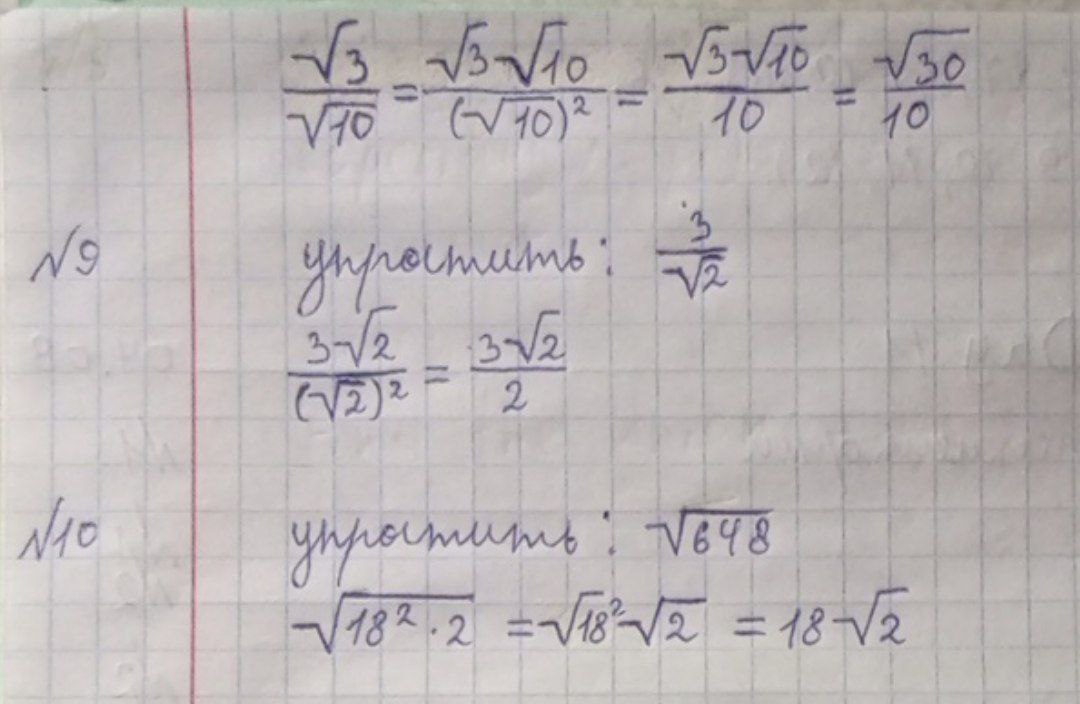 √3/√10 = √3 √10/(√10)² = √3 √10/10 = √30/10
№9 упростить: 3/√2
3√2/(√2)² = 3√2/2
№10 упростить: √648
√18²·2 = √18² √2 = 18√2